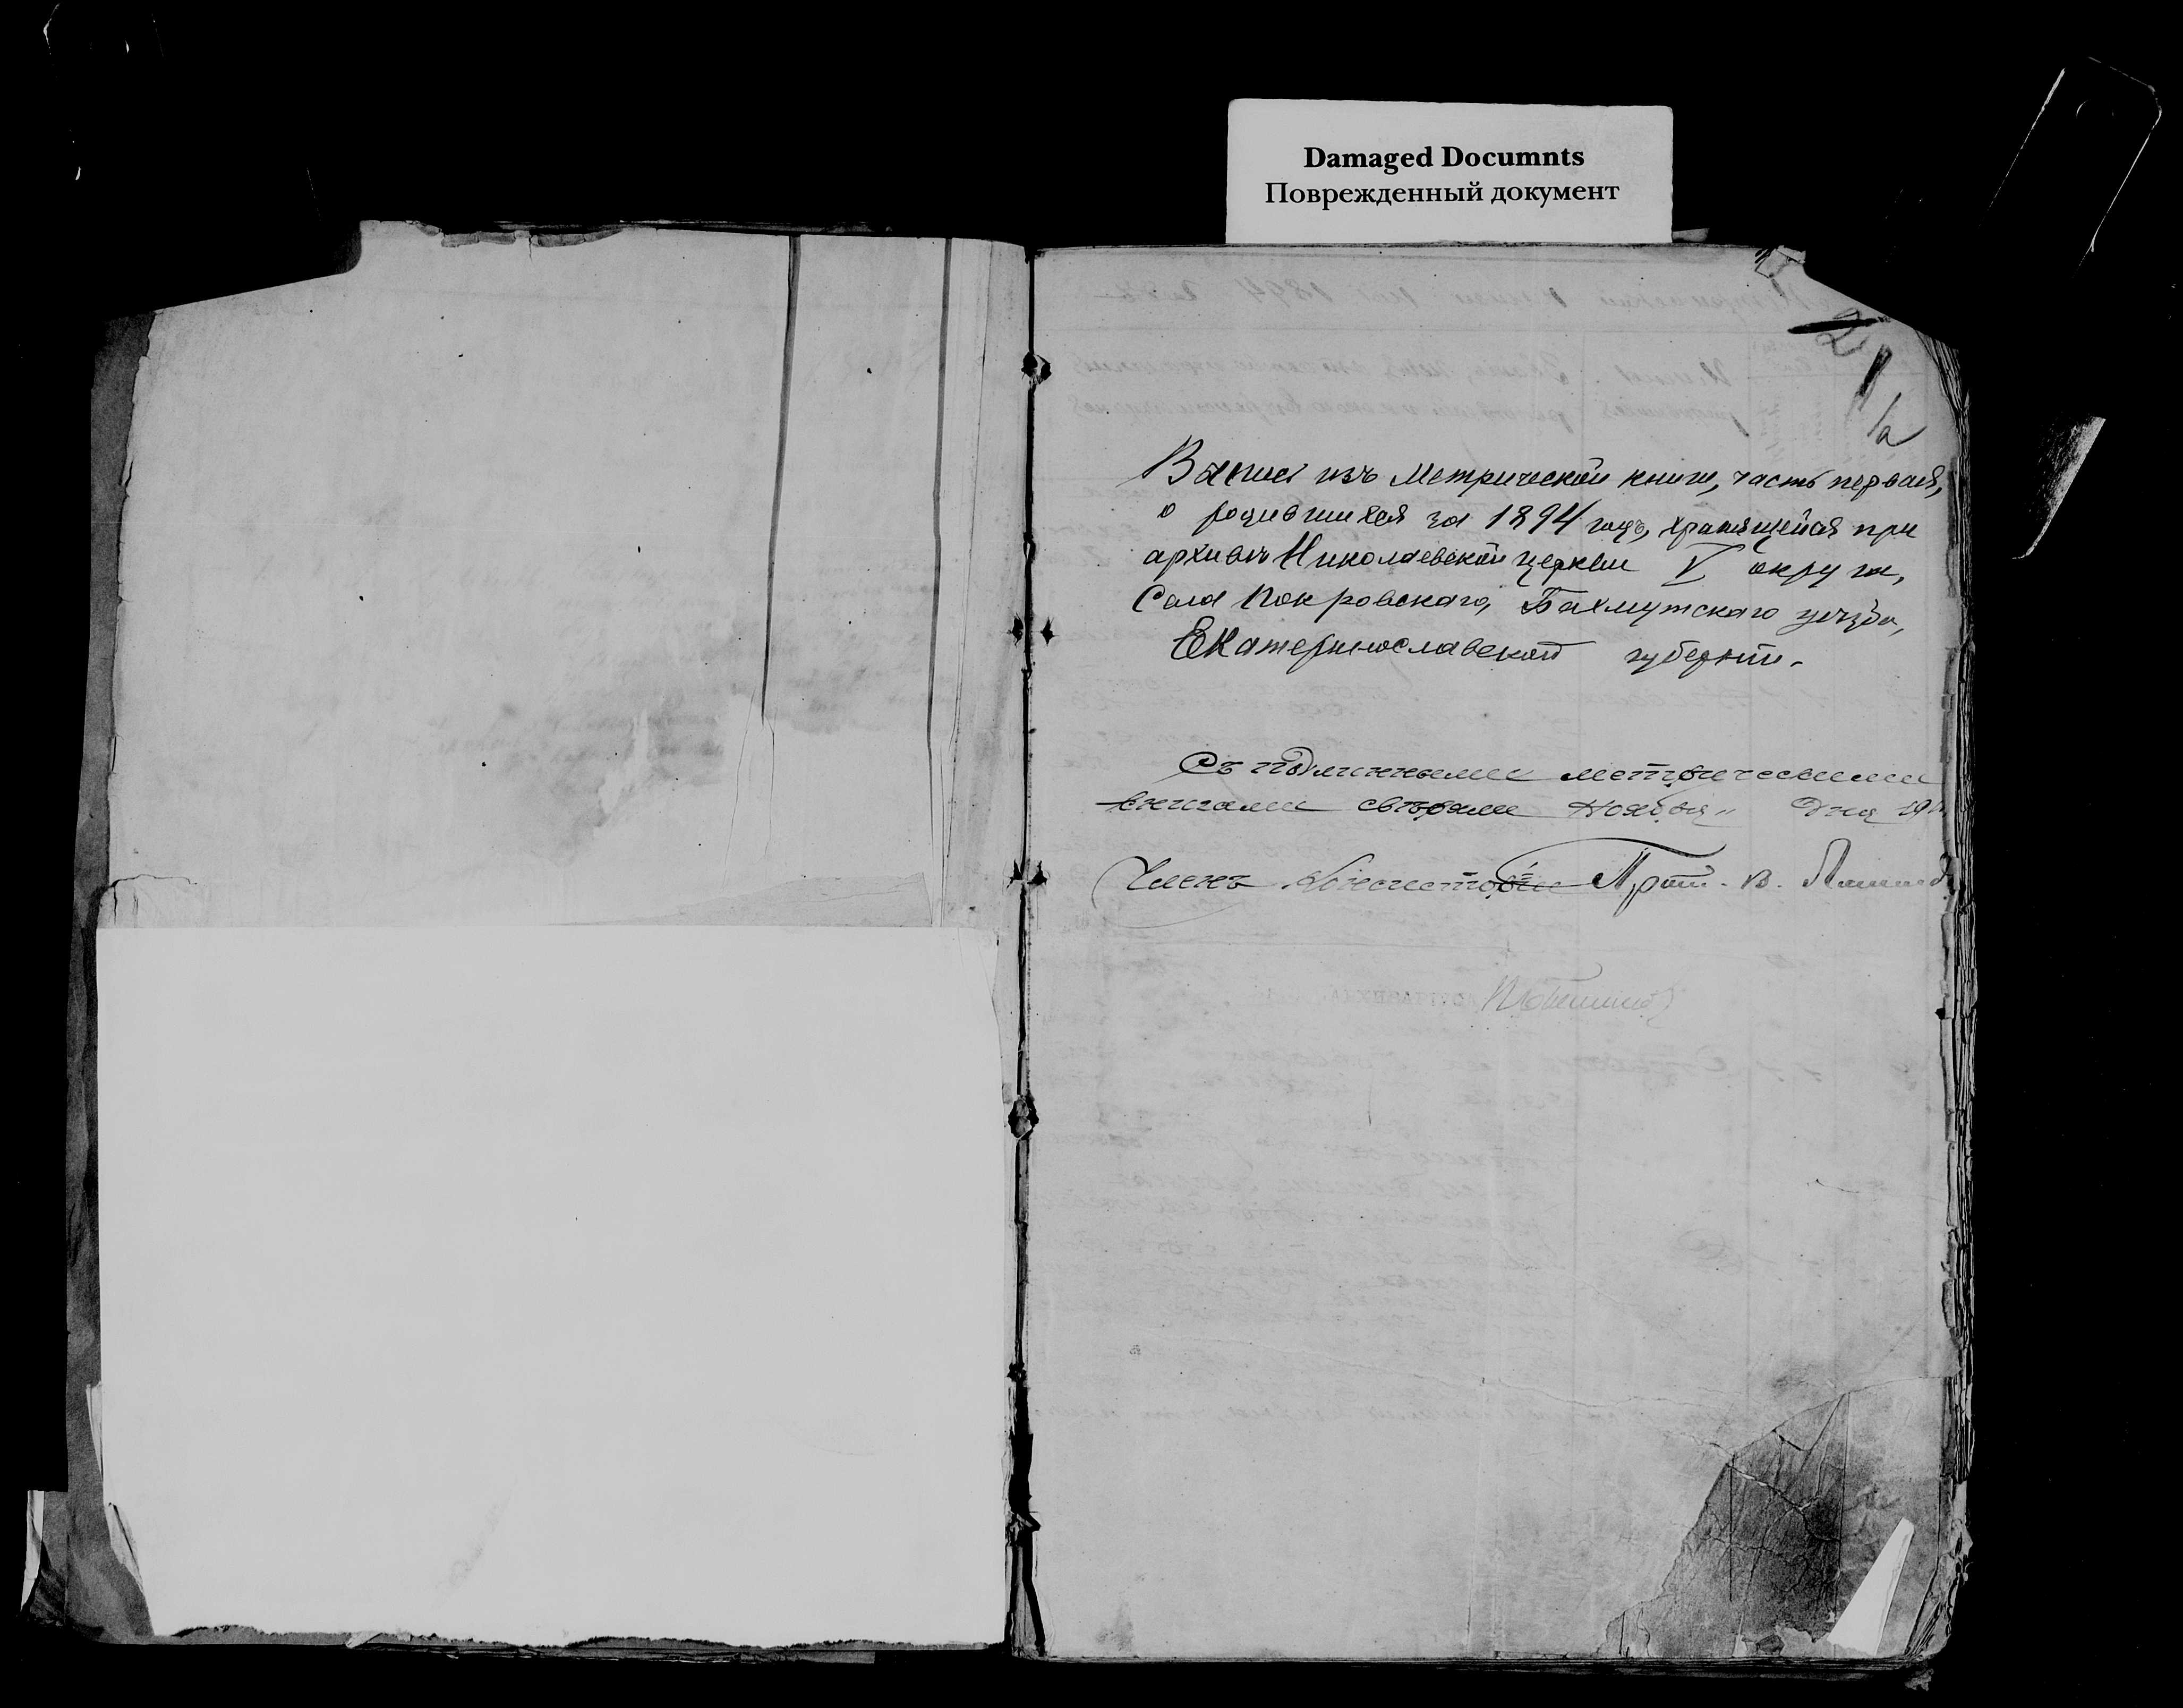 Damaged Documnts
Поврежденный документ
2
1
Выпись изъ Метрической книги, часть первая,
о родившихся за 1894 годъ, хранящейся при
архивѣ Николаевской церкви V округа,
Села Покровскаго, Бахмутскаго уѣзда,
Екатеринославской губерніи.
Съ подлинными метрическими
книгами свѣрялъ Ноября „ Дня 19
Членъ Консисторіи Прот. В.
АРХИВАРІУСЪ